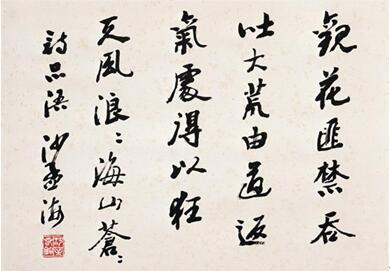 觀花匪禁吞
吐大荒由道返
氣處得以狂
天風浪〻海山蒼〻
詩品語 沙孟海